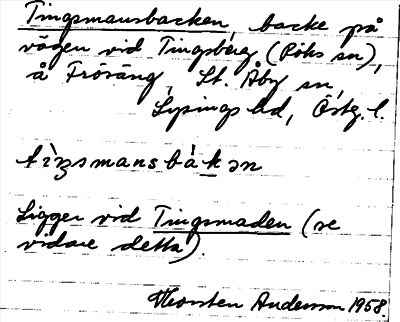 Tingsmansbacken, backe på
vägen vid Tingsberg (Röks sn),
å Fröäng, St. Åby sn,
Lysings hd, Östg. l.
tìŋsmansbàkən
Ligger vid Tingsmaden (se
vidare detta).
Thorsten Andersson 1958.